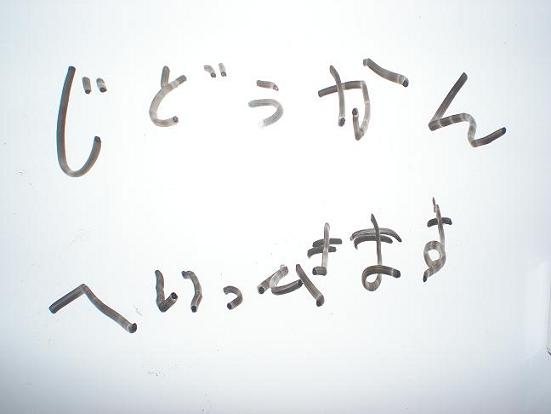 じどうかん
へいってきます